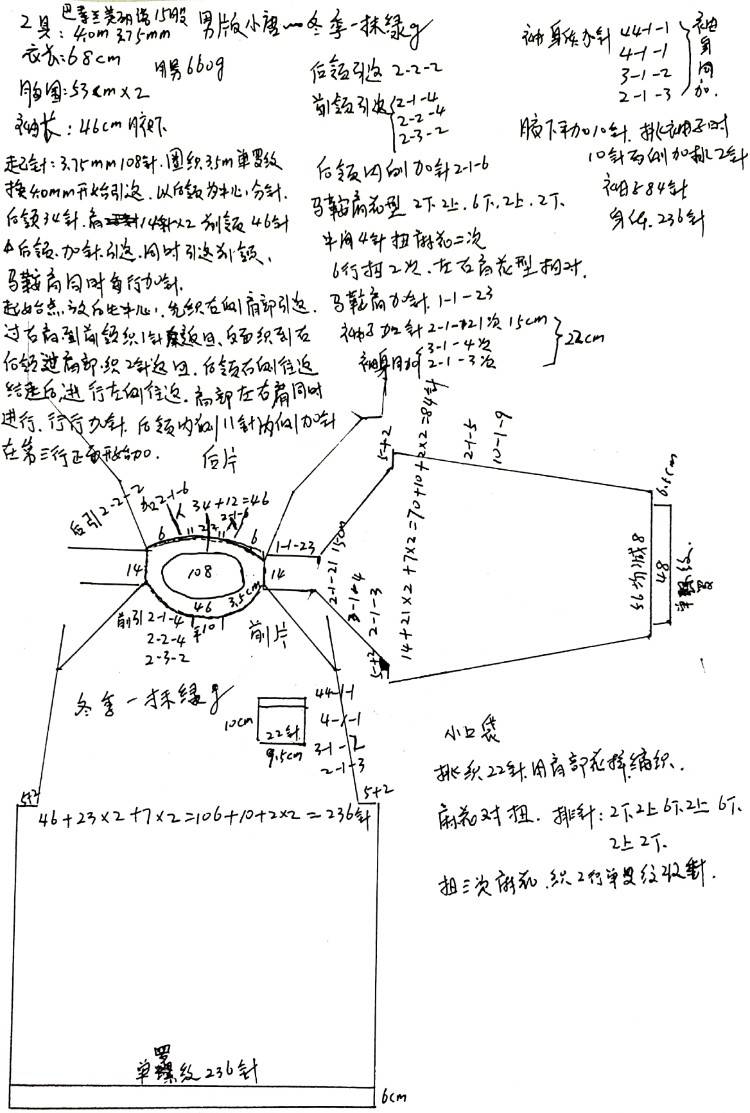 工具: 4.0m 3.75mm
男版小唐一冬季一抹绿g
衣长:68cm
用男660g
胸围:53cm×2
袖长:46cm 腋下
起针:3.75mm 108针.圈织3.5m单罗纹
换4.0mm开始引返.以后领为中心,分针.
后领34针.肩14针×2 前领46针
后领.加针.引返.同时引返前领、
马鞍肩同时每行加针.
起始点放后片中心,先织右侧肩部引返.
过右肩到前领织1针返回,反面织到右
后领进肩部.织2针返回.后领右侧往返
结束后,进行左侧往返.肩部左右肩同时
进行.行行加针.后领内侧11针内侧加针
在第三行正面开始加.
后领引返 2-2-2
前领引返
2-1-4
2-2-4
2-3-2
后领内侧加针2-1-6
马鞍肩花型 2下.2上.6下.2上.2下.
中间4针扭麻花二次
6行扭2次.左右肩花型相对.
马鞍肩加针.1-1-23
袖子加针2-1-21次 15cm
3-1-4次
2-1-3次
22cm
袖身同加
袖身依加针
44-1-1
4-1-1
3-1-2
2-1-3
袖身同加.
腋下平加10针.挑袖子时
10针两侧加挑2针
袖片84针
身体.236针
后片
后引2-2-2
加2-1-6
34+12=46
2-1-6
6
11
2
2
11
6
1-1-23
14
108
14
46
3.5cm
平10
前引2-1-4
2-2-4
2-3-2
前片
2-1-21 15cm
3-1-4
2-1-3
5+2
5+2
14+21×2+7×2=70+10+2×2=84针
2-1-5
10-1-9
56均减8
48
6.5cm
单罗纹
冬季一抹绿g
10cm
22针
9.5cm
44-1-1
4-1-1
3-1-2
2-1-3
小口袋
挑织22针.用肩部花样编织.
麻花对扭.排针:2下.2上6下.2上6下.
2上2下.
扭三次麻花.织2行单罗纹收针.
5+2
5+2
46+23×2+7×2=106+10+2×2=236针
单罗纹236针
6cm